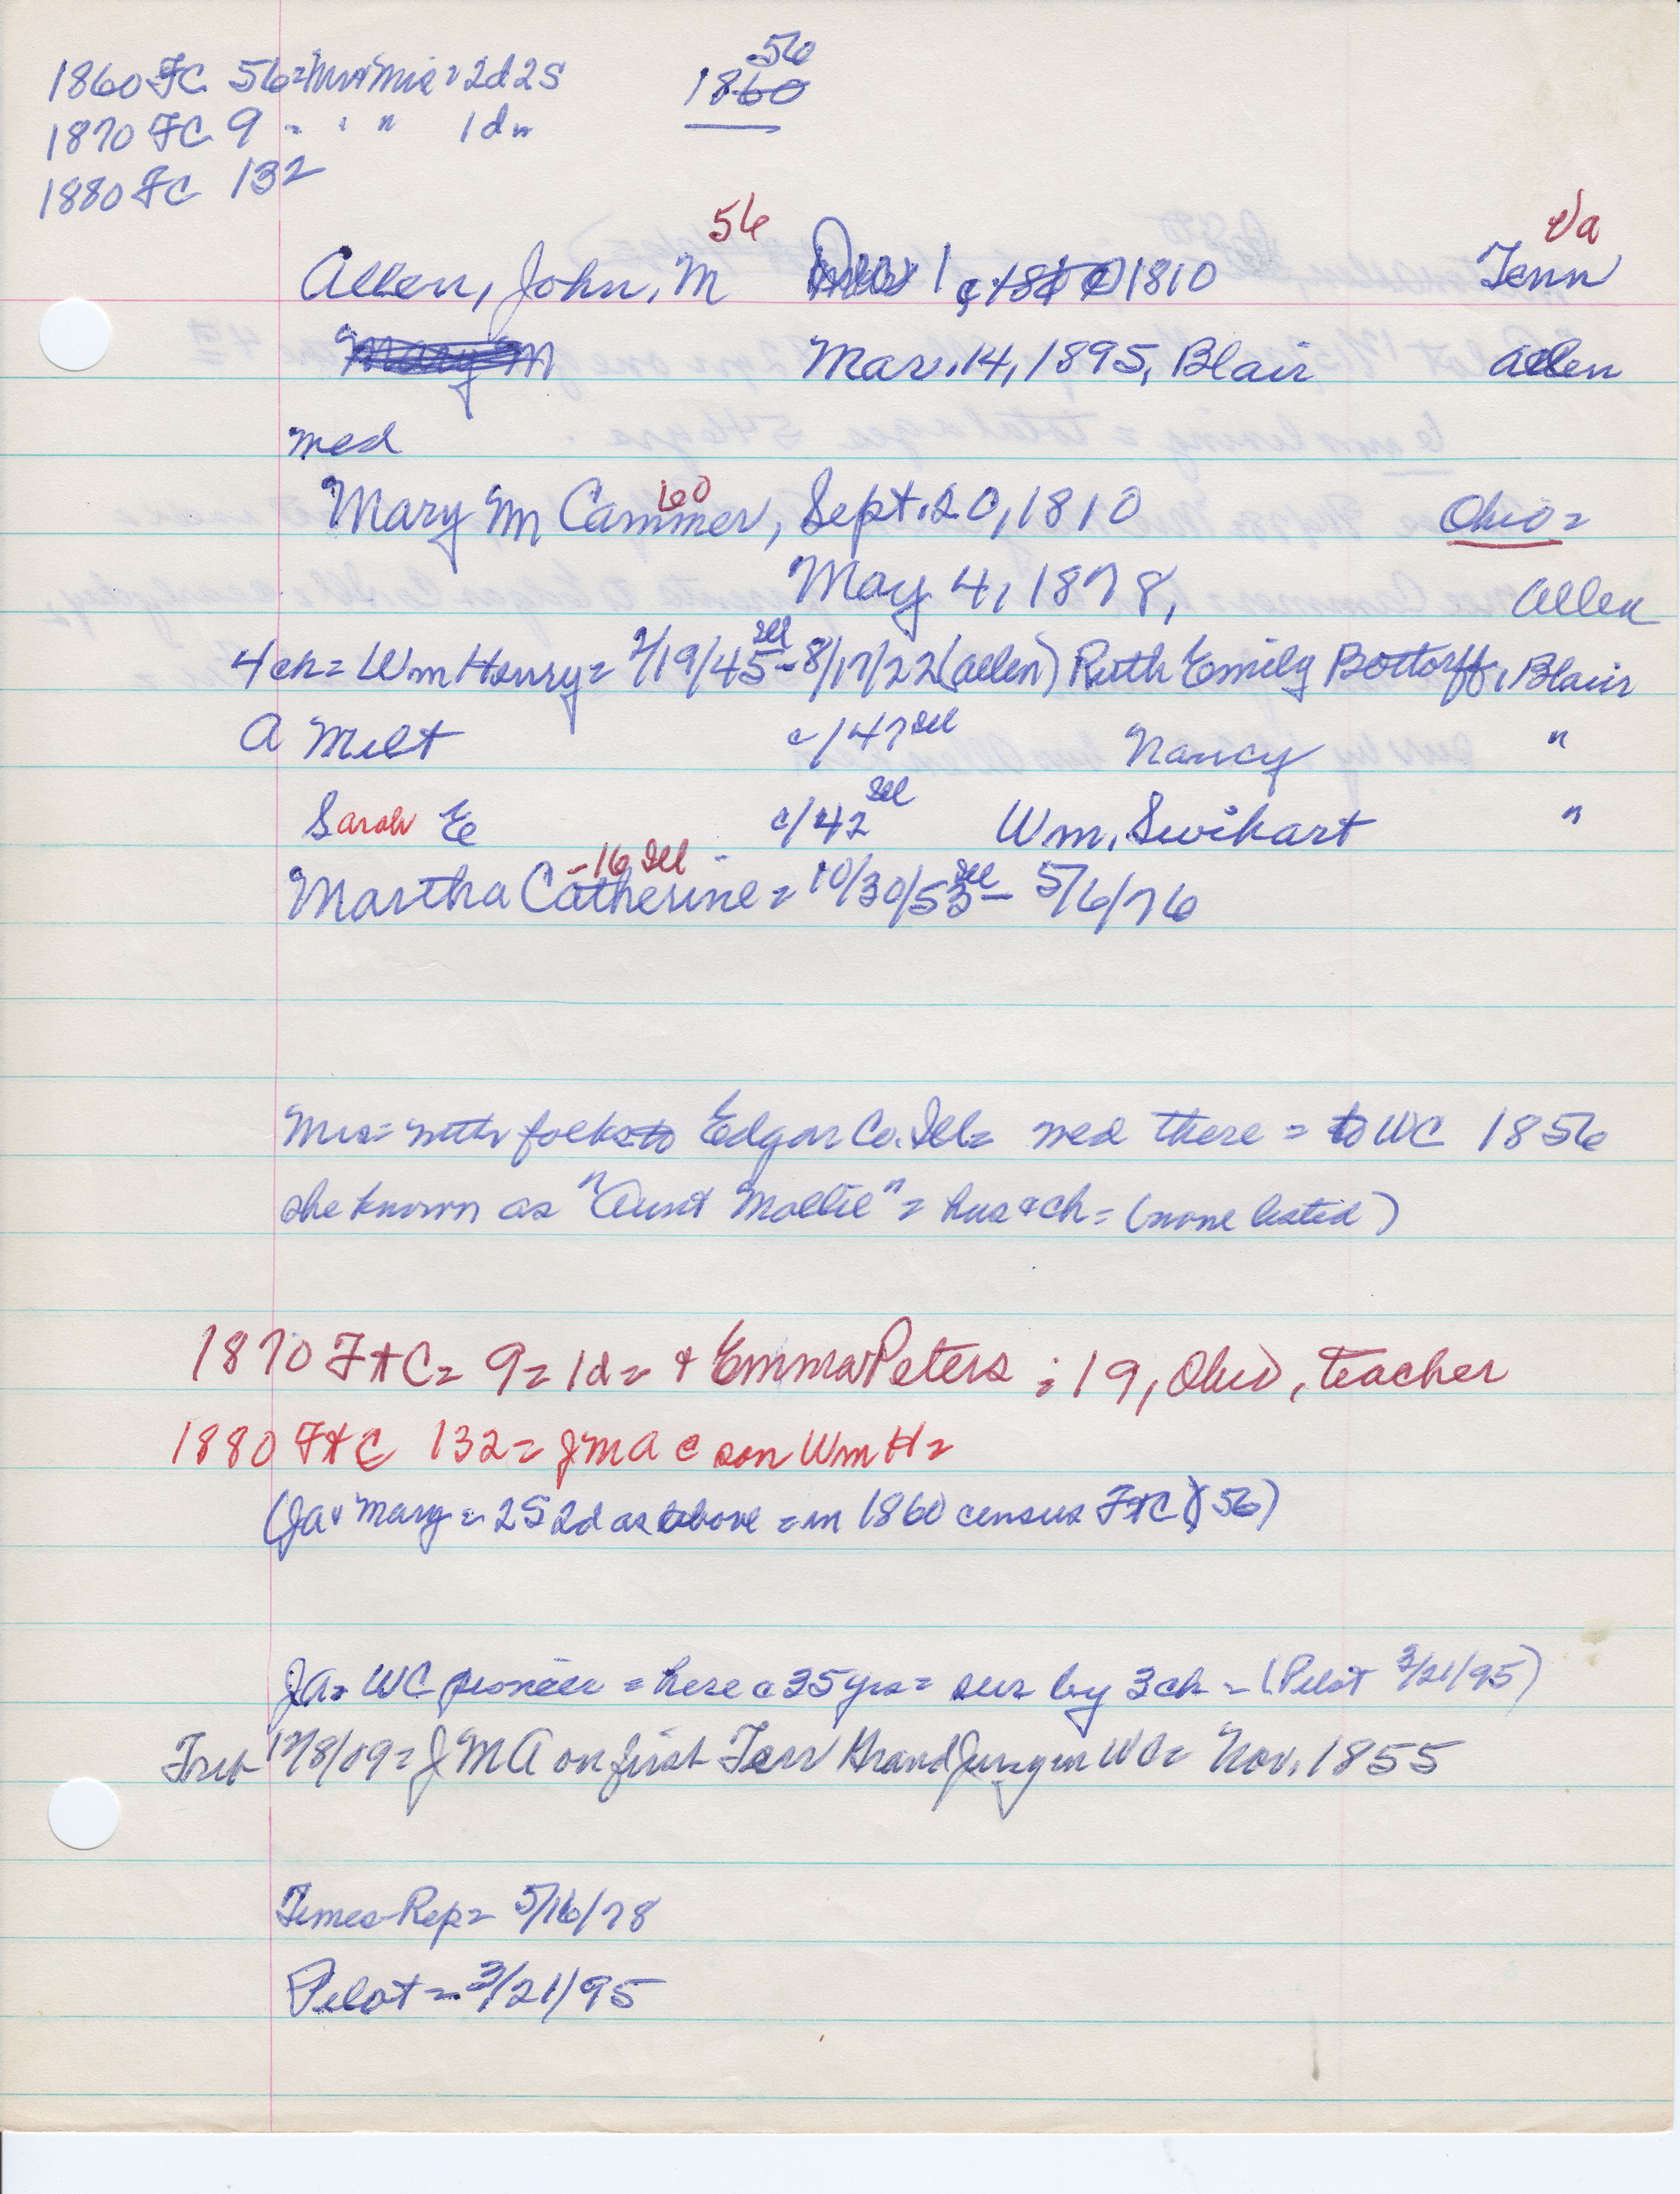 1860 FC 56 = Mr & Mrs = 2d 2S
56
1860
1870 FC 9 " " " 1d "
1880 FC 132
56
Va
Allen, John, M 1 1810 Tenn
Mary M Mar. 14, 1895, Blair Allen
med
60
Mary M Cammer, Sept. 20, 1810 Ohio =
May 4, 1878, Allen
4 ch = Wm Henry = 2/19/45 Ill - 8/17/22 (Allen) Ruth Emily Bottorff, Blair
A Milt c/47 Ill Nancy "
Sarah E c/42 Ill Wm. Swihart "
- 16 Ill
Martha Catherine = 10/30/53 Ill - 5/6/76
Mrs = with folks to Edgar Co. Ill = med there = to WC 1856
she known as "Aunt Mollie" = hus & ch = (none listed)
1870 F+C = 9 = 1d = & Emma Peters ; 19, Ohio, teacher
1880 F+C 132 = JMA c son Wm H =
(Ja & Mary = 2S 2d as above = in 1860 census F+C) (56)
JA = WC pioneer = here c 35 yrs = sur by 3 ch - (Pilot 3/21/95)
8/09 = JMA on first Grand Jury in WC = Nov. 1855
Times-Rep = 5/16/78
Pilot = 3/21/95